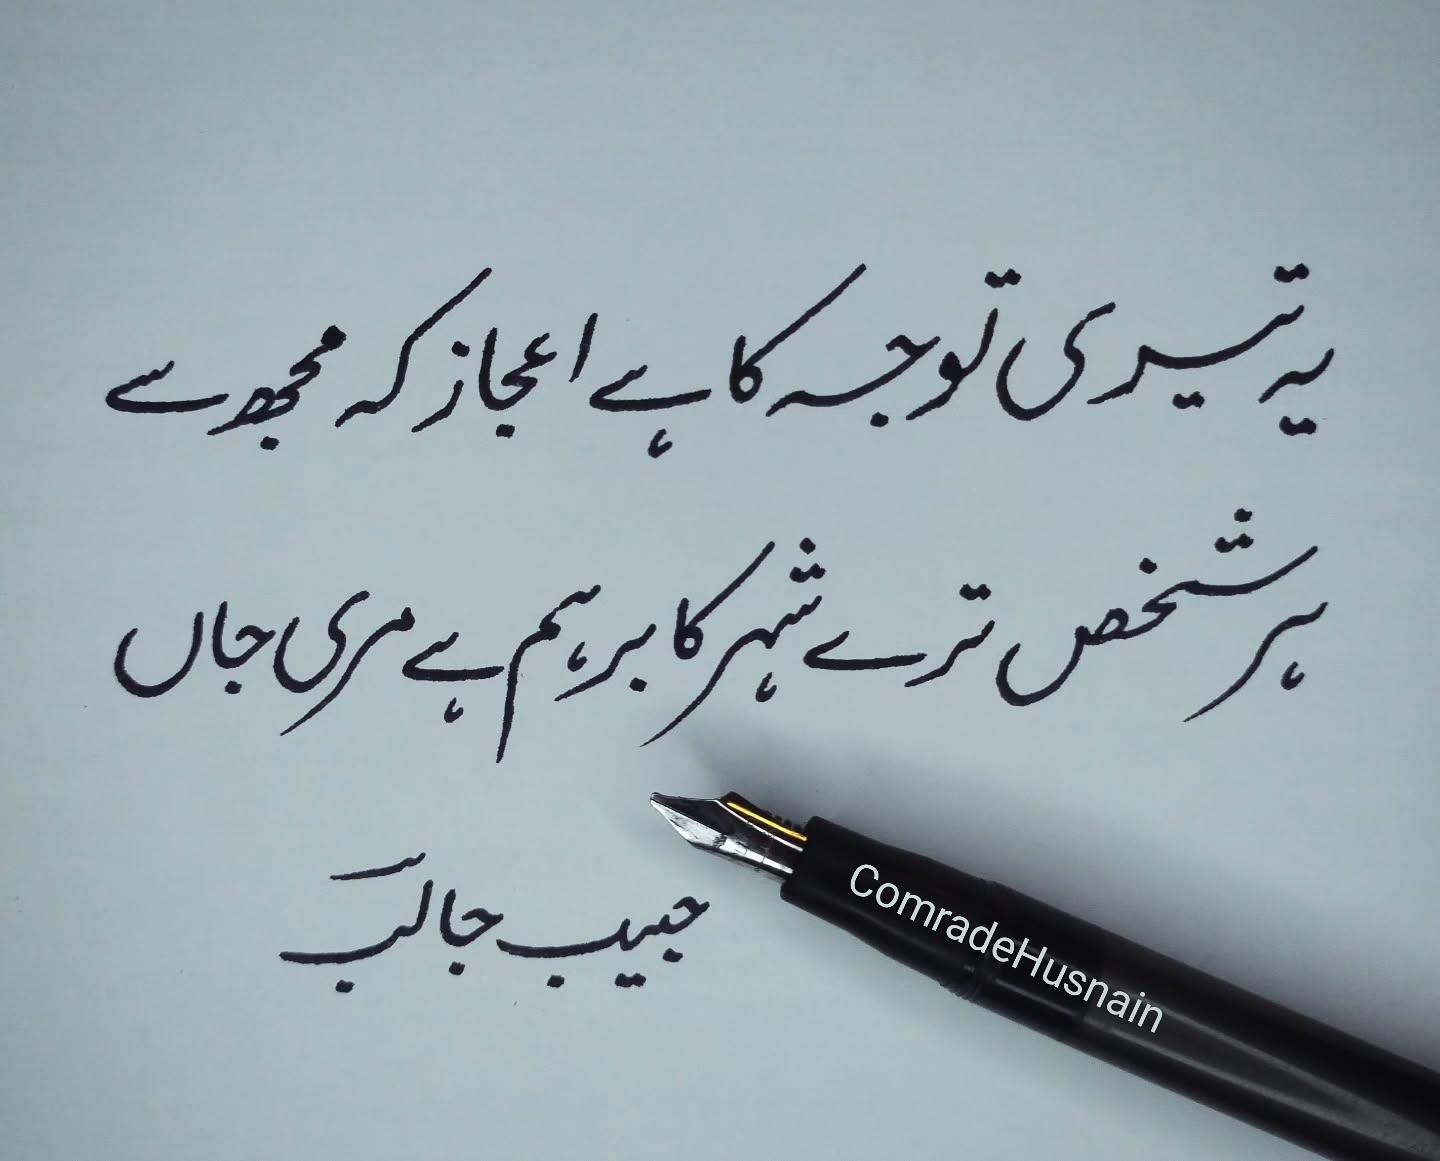 یہ تیری توجہ کا ہے اعجاز کہ مجھ سے
ہر شخص ترے شہر کا برہم ہے مری جاں
حبیب جالب
ComradeHusnain